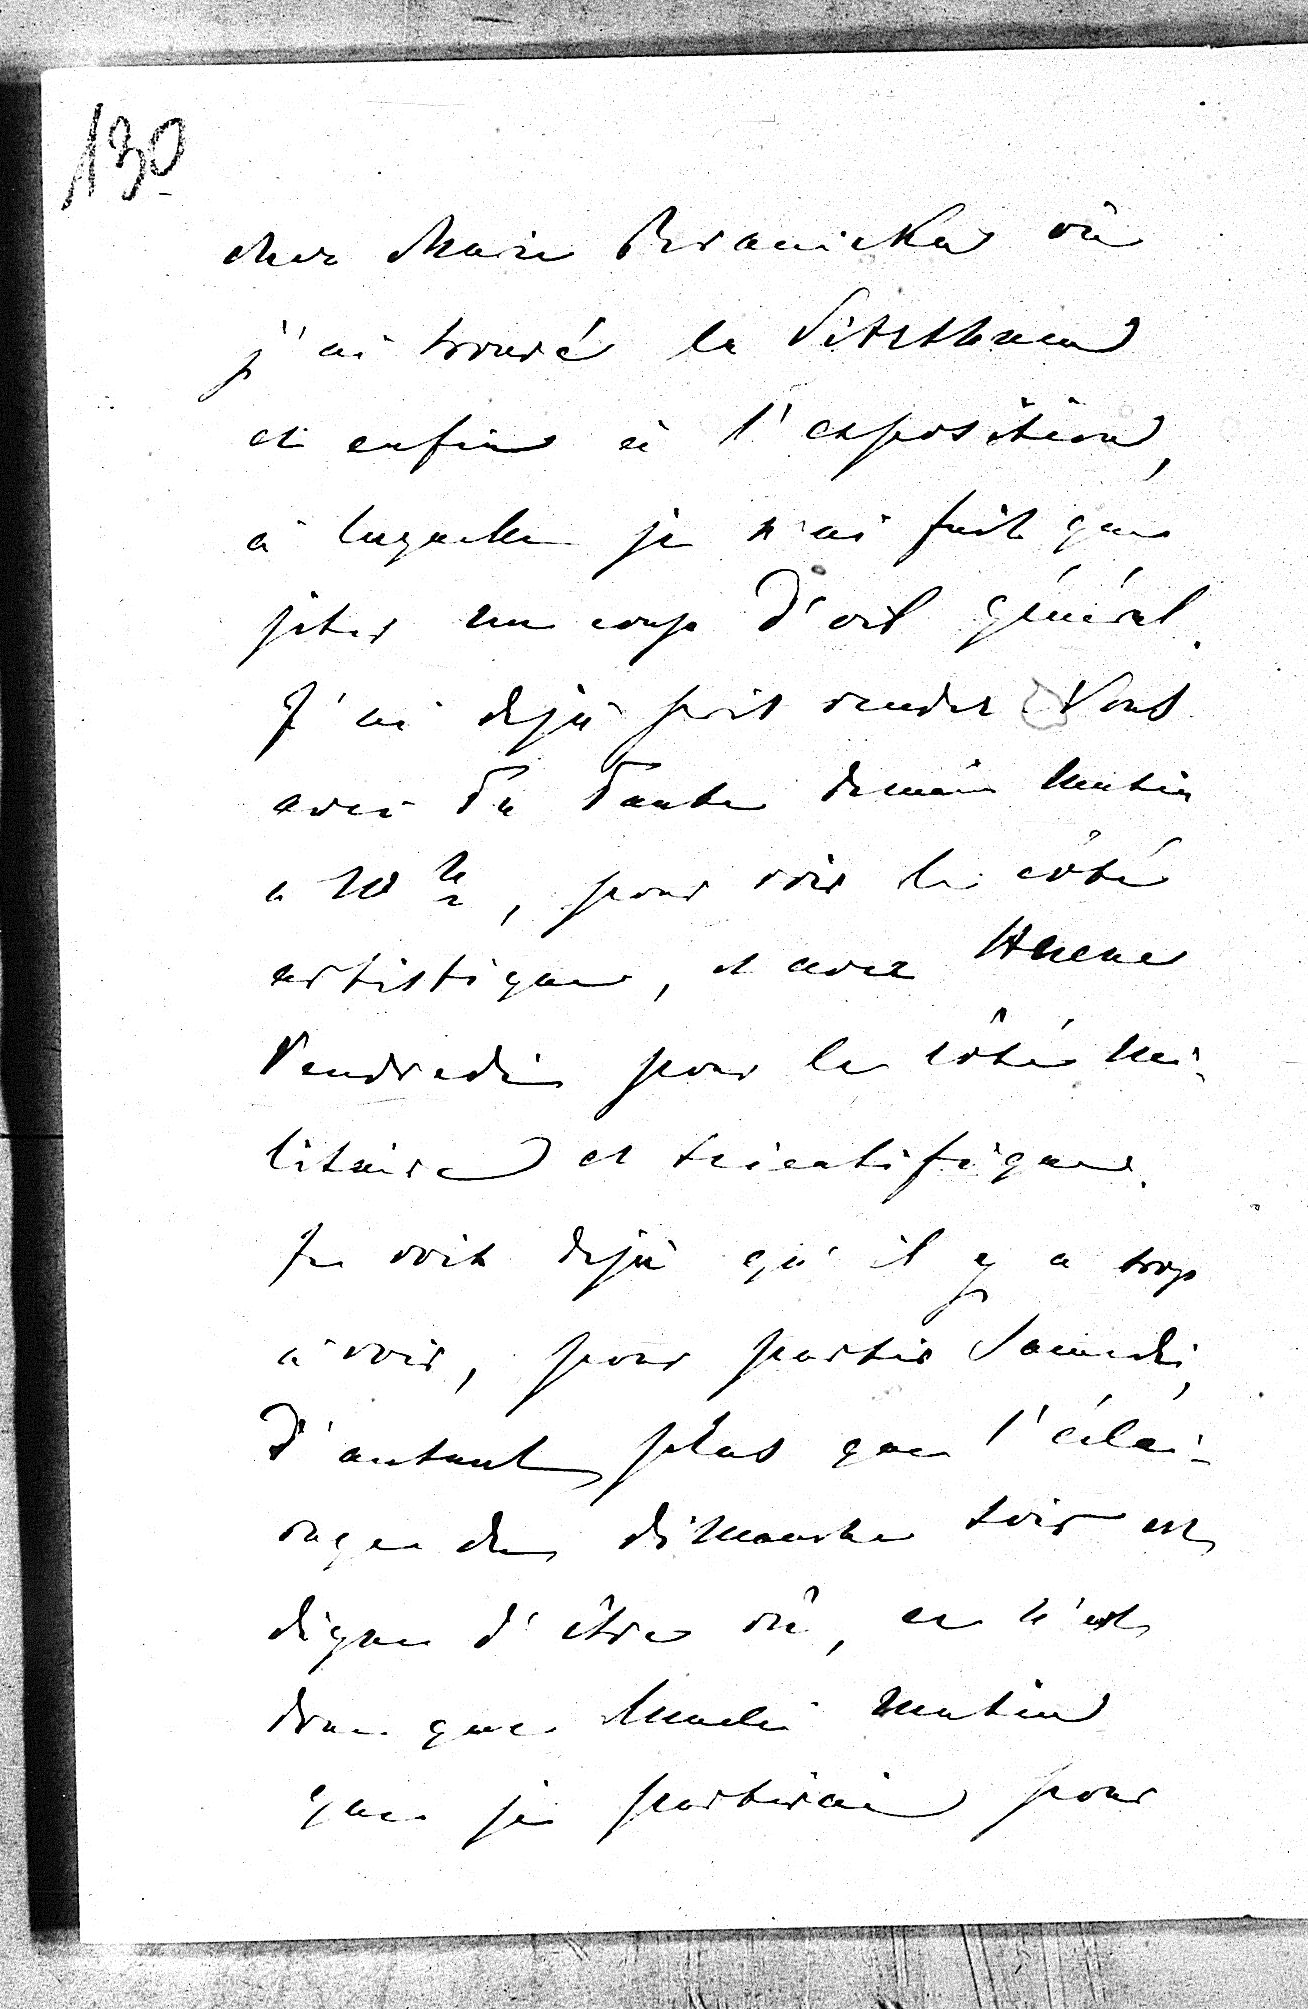 130
chez Marie Branicka où
j'ai trouvé la Vitzthum
et enfin à l'exposition,
à laquelle je n'ai fait que
jeter un coup d'œil général.
J'ai dejà pris rendez Vous
avec Du demain Matin
a 10 h, pour voir le côté
artistique, et avec
Vendredi pour le côté mi-
litaire et scientifique.
Je vois dejà qu'il y a trop
à voir, pour partir Samedi,
d'autant plus que l'éclai-
rage de dimanche soir est
digne d'être vû, ce n'est
donc que Mardi Matin
que je partirai pour